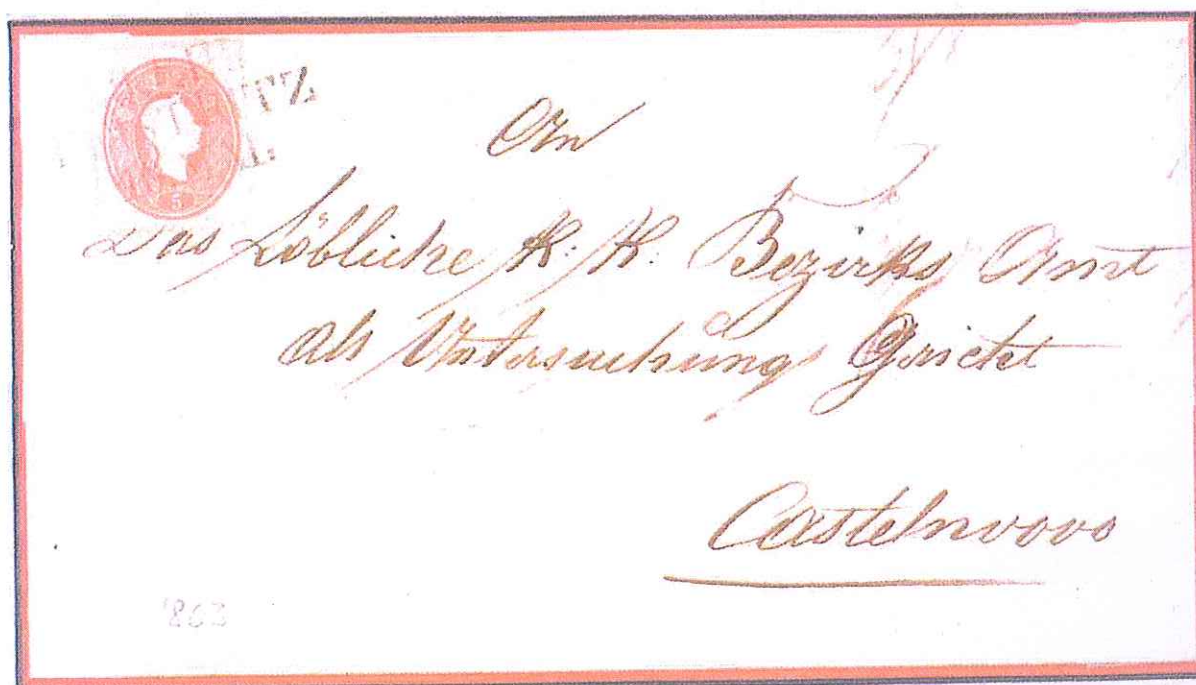 TZ
5
An
Das Löbliche K: K: Bezirks Amt
als Untersuchung Gericht
Castelnuovo
1863